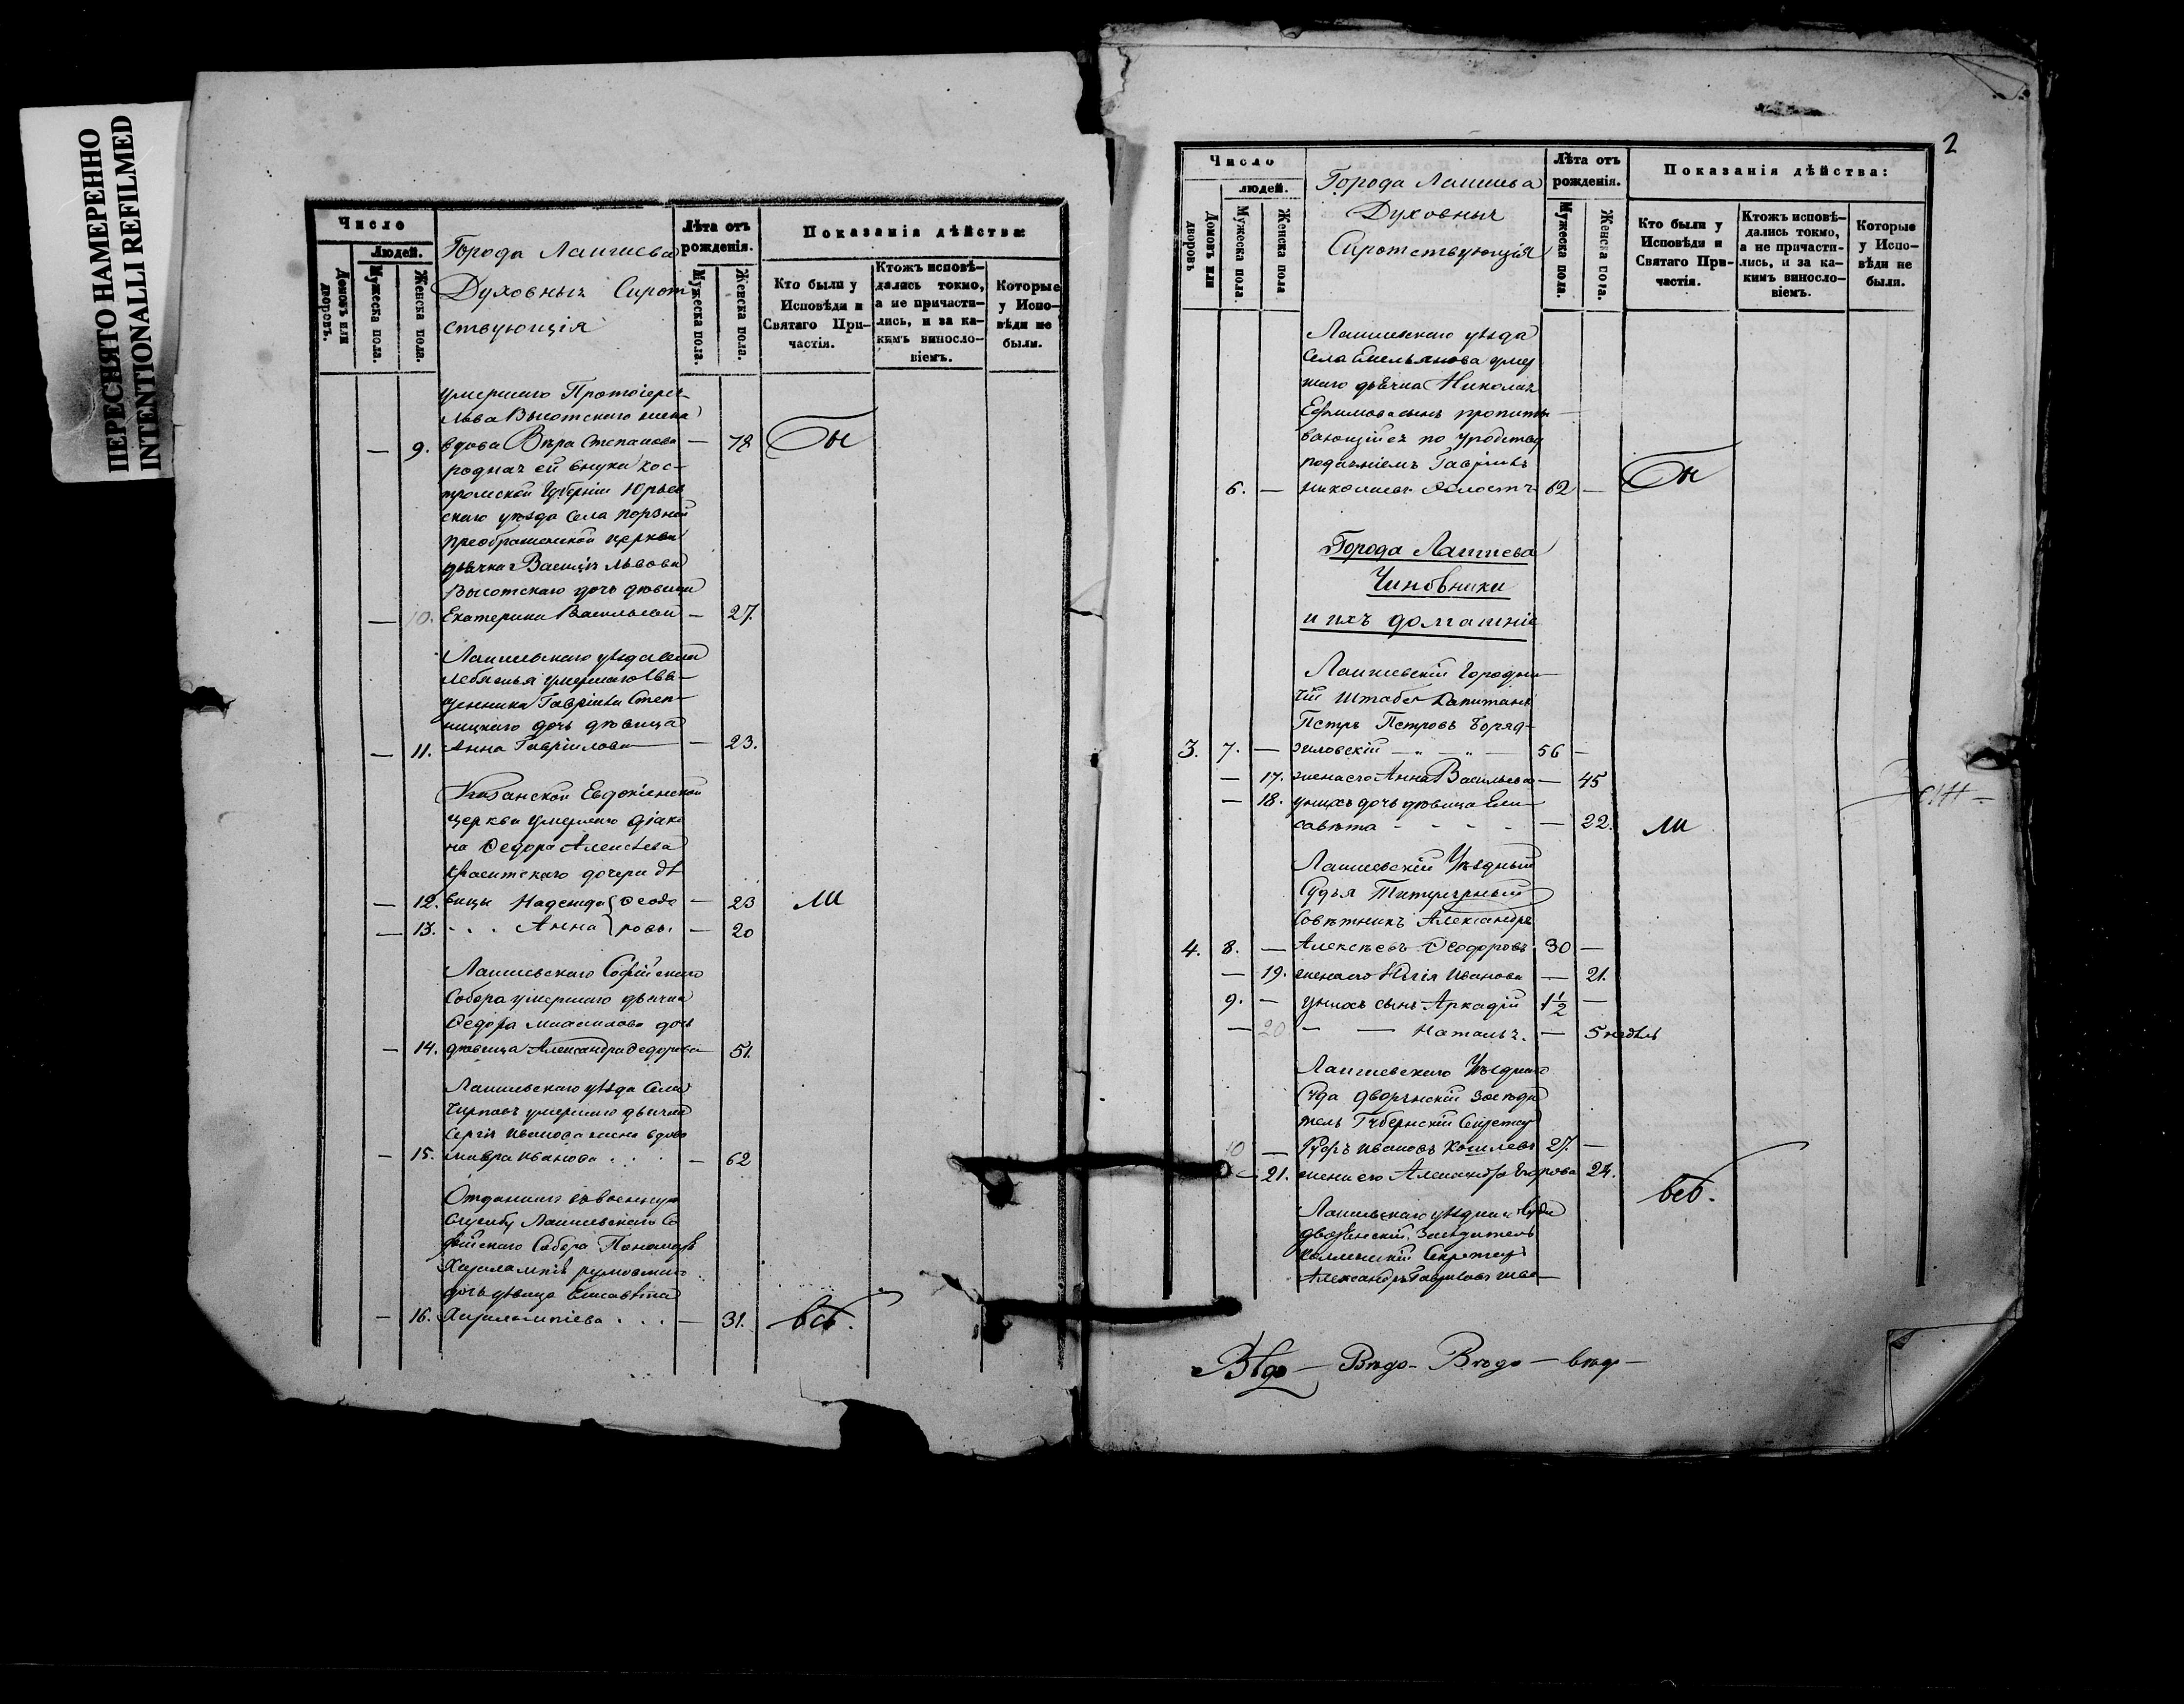 ПЕРЕСНЯТО НАМЕРЕННО
INTENTIONALLI REFILMED
Число
Людей.
Домовъ или дворовъ.
Мужеска пола.
Женска пола.
Города Лаишева
Духовныя Сирот
ствующія
Лѣта отъ рожденія.
Мужеска пола.
Женска пола.
Показанія дѣйства:
Кто были у Исповѣди и Святаго Причастія.
Ктожъ исповѣдались токмо, а не причастились, и за какимъ винословіемъ.
Которые у Исповѣди не были.
умершаго Протоіерея
Льва Высотскаго жена
— 9. вдова Вѣра Степанова — 78 Бы
родная ей внука Кос-
тромской Губерніи Юрьев
скаго уѣзда Села
Преображенской церкви
дьячка Василія Львова
Высотскаго дочь дѣвица
— 10. Екатерина Васильева — 27.
Лаишевскаго уѣзда села
умершаго Свя-
щенника Гавріила Степ-
ницкаго дочь дѣвица
— 11. Анна Гавріилова — 23.
Казанской Евдокіевской
церкви умершаго діако
на Ѳедора Алексѣева
дочери дѣ
— 12. вицы Надежда Ѳеодо — 23 ли
— 13. Анна ровы — 20
Лаишевскаго Софійскаго
Собора умершаго дьячка
Ѳедора дочь
— 14. дѣвица Александра Ѳедорова — 51.
Лаишевскаго уѣзда Села
умершаго дьячка
Сергія Иванова жена вдова
— 15. Мавра Иванова — 62
Отданнаго въ военную
службу Лаишевскаго Со
фійскаго Собора Пономаря
Харлампія
дочь дѣвица Елисавета
— 16. Харлампіева — 31. всѣ.
2
Число
людей.
Домовъ или дворовъ
Мужеска пола.
Женска пола
Города Лаишева
Духовныя
Сиротствующія
Лѣта отъ рожденія.
Мужеска пола.
Женска пола.
Показанія дѣйства:
Кто были у Исповѣди и Святаго Причастія.
Ктожъ исповѣдались токмо, а не причастились, и за какимъ винословіемъ.
Которые у Исповѣди не были.
Лаишевскаго уѣзда
Села Емельянова умер
шаго дьячка Николая
Ефимова сынъ пропиты
вающійся по уродству
подаяніемъ Гавріилъ
6. — Николаевъ холостъ 62 — Бы
Города Лаишева
Чиновники
и ихъ домашніе
Лаишевскій Городни-
чій Штабсъ Капитанъ
Петръ Петровъ
3. 7. — 56 —
— 17. жена его Анна Васильева — 45
— 18. у нихъ дочь дѣвица Ели-
савета — 22. ли
Лаишевскій Уѣздный
Судья Титулярный
Совѣтникъ Александръ
4. 8. — Алексѣевъ Ѳеодоровъ 30 —
— 19. жена его Иванова — 21.
9. — у нихъ сынъ Аркадій 1½ —
— 20 — — Наталья. — 5 недѣль
Лаишевскаго Уѣзднаго
Суда дворянскій засѣда
тель Губернскій Секретарь
10 — Ивановъ 27. —
— 21. жена его Александра Егорова 24. всѣ.
Лаишевскаго уѣзднаго Суда
дворянскій Засѣдатель
Коллежскій Секретарь
Александръ Гавриловъ